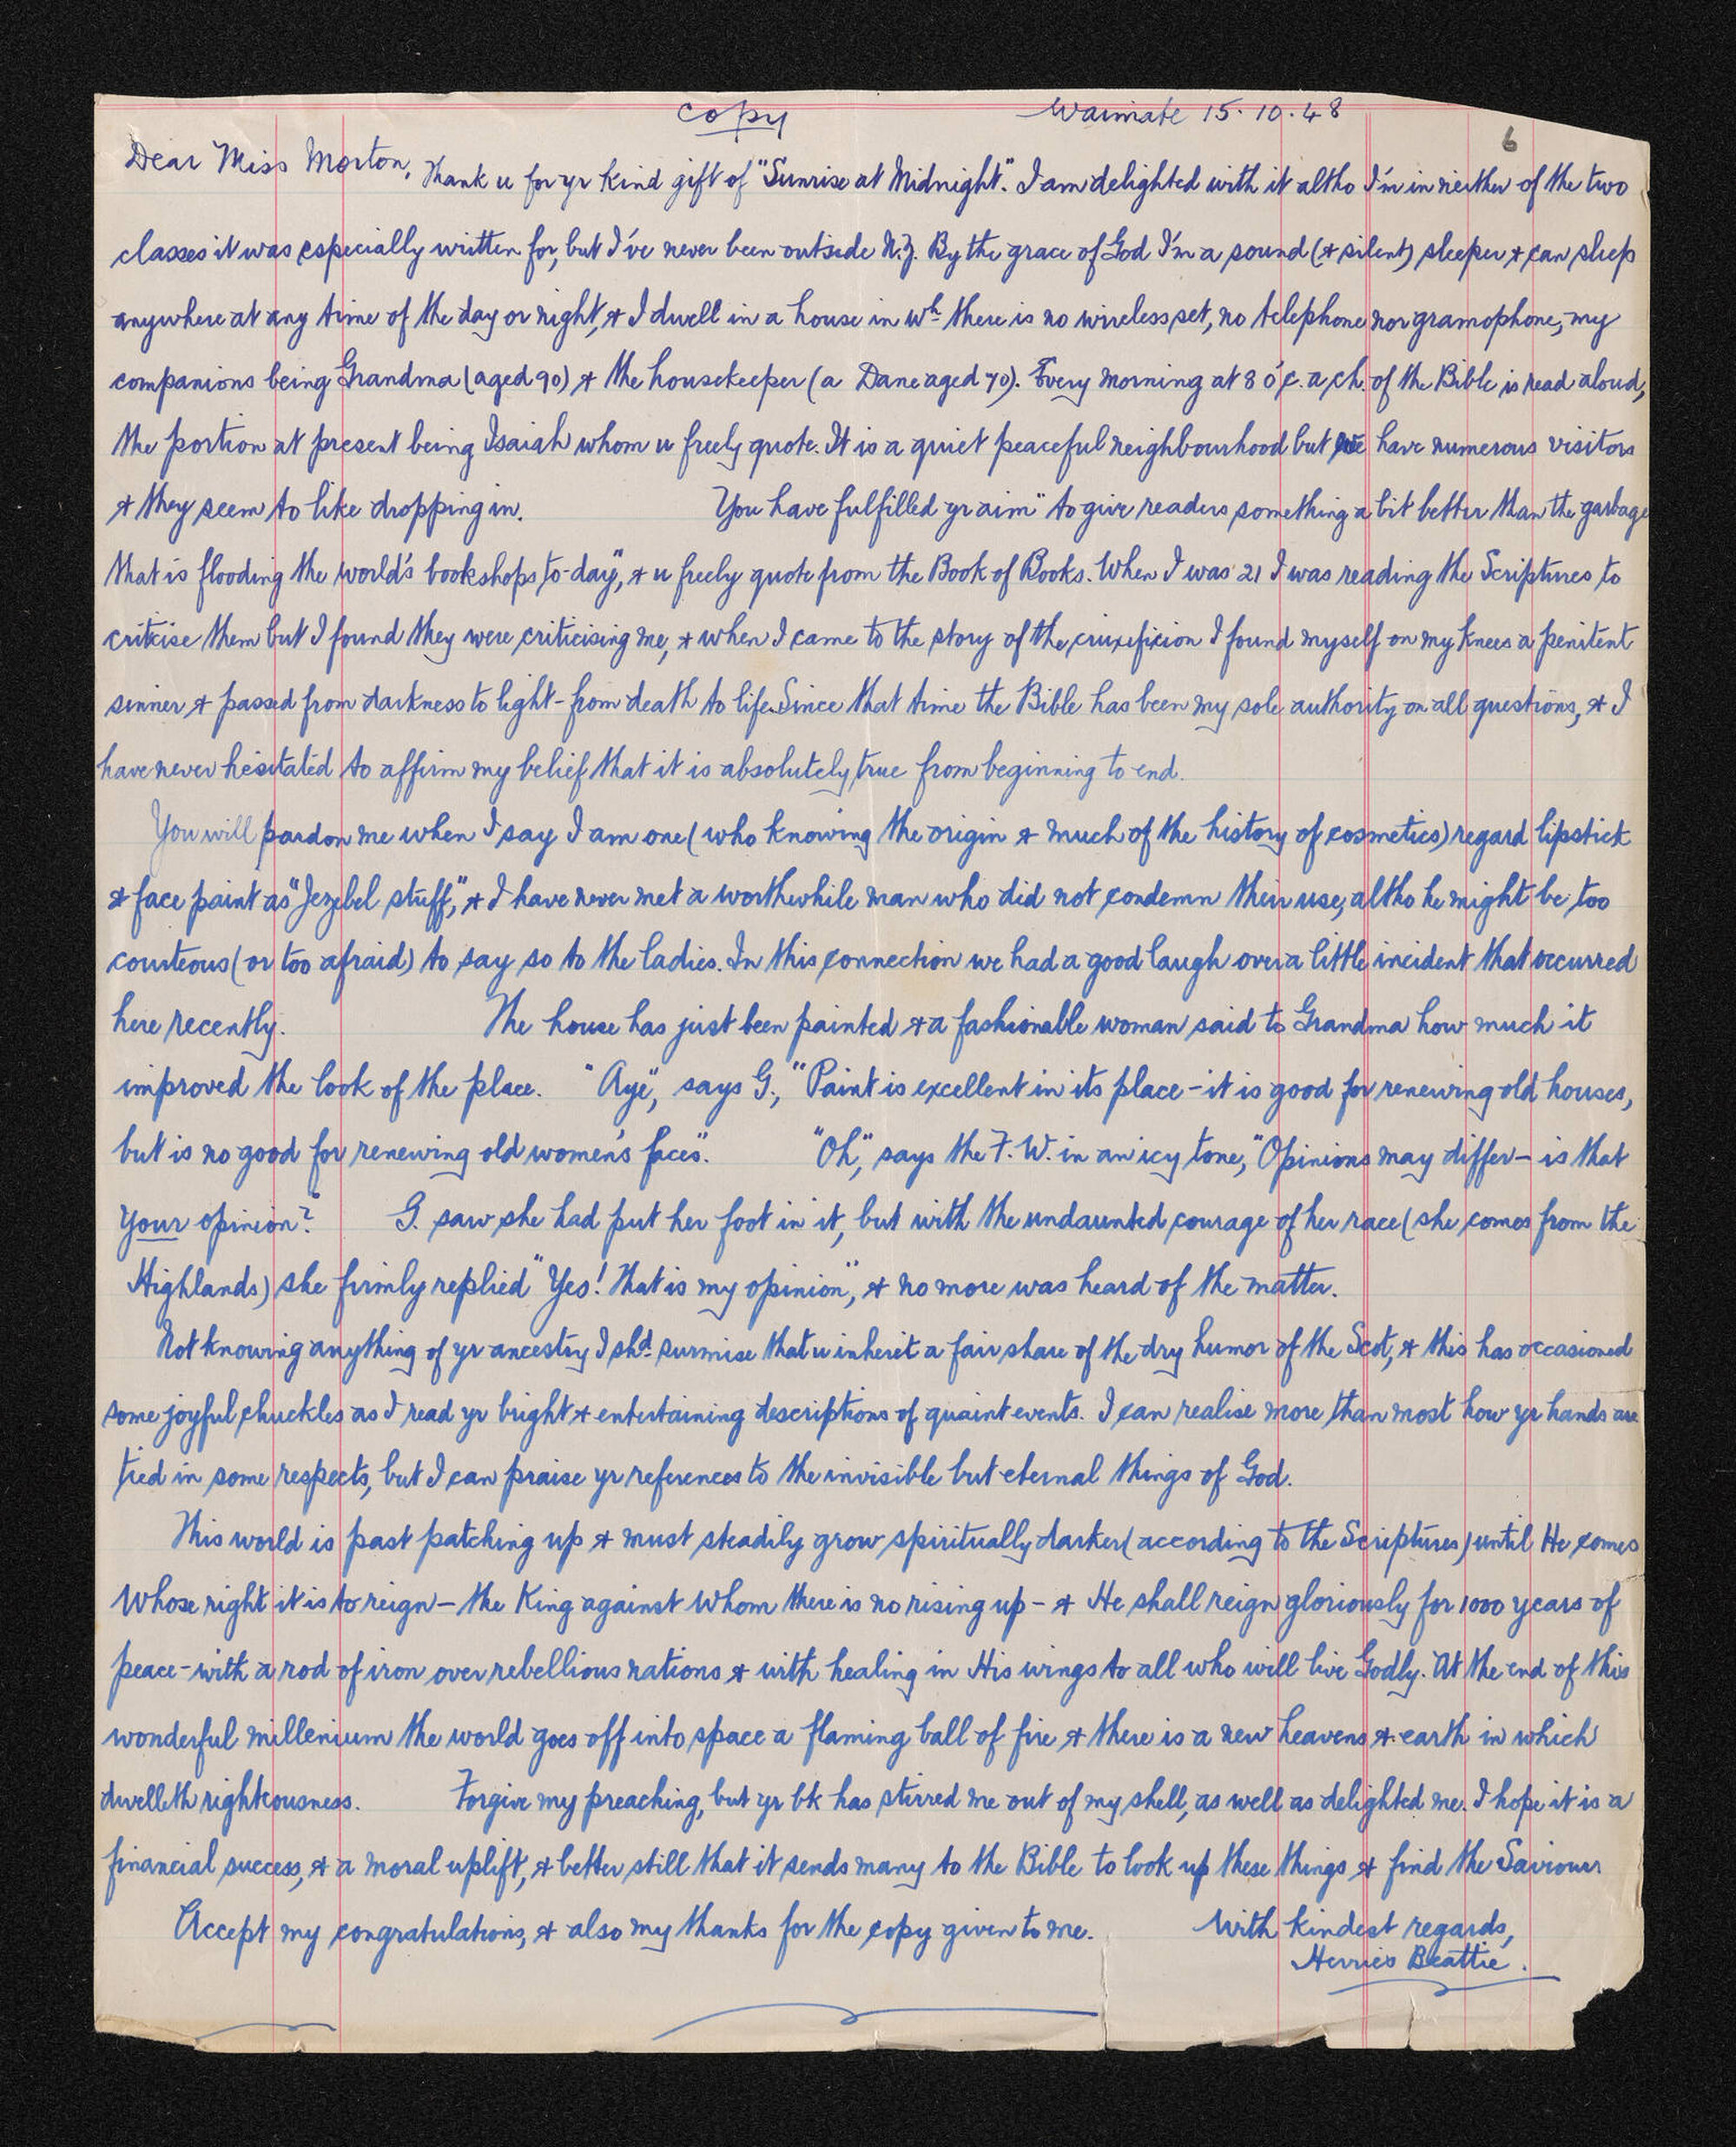 copy
Waimate 15.10.48
6
Dear Miss Morton, Thank u for yr kind gift of "Sunrise at Midnight." I am delighted with it altho I'm in neither of the two
classes it was especially written for, but I've never been outside N.Z. By the grace of God I'm a sound (& silent) sleeper & can sleep
anywhere at any time of the day or night, & I dwell in a house in wh. there is no wireless set, no telephone nor gramophone, my
companions being Grandma (aged 90) & the housekeeper (a Dane aged 70). Every morning at 8 o'c. a ch. of the Bible is read aloud,
the portion at present being Isaiah whom u freely quote. It is a quiet peaceful neighbourhood but we have numerous visitors
& they seem to like dropping in. You have fulfilled yr aim "to give readers something a bit better than the garbage
that is flooding the world's bookshops to-day", & u freely quote from the Book of Books. When I was 21 I was reading the Scriptures to
criticise them but I found they were criticising me, & when I came to the story of the crucifixion I found myself on my knees a penitent
sinner & passed from darkness to light - from death to life. Since that time the Bible has been my sole authority on all questions, & I
have never hesitated to affirm my belief that it is absolutely true from beginning to end.
You will pardon me when I say I am one (who knowing the origin & much of the history of cosmetics) regard lipstick
& face paint as "Jezebel stuff," & I have never met a worthwhile man who did not condemn their use, altho he might be too
courteous (or too afraid) to say so to the ladies. In this connection we had a good laugh over a little incident that occurred
here recently. The house has just been painted & a fashionable woman said to Grandma how much it
improved the look of the place. "Aye", says G., "Paint is excellent in its place - it is good for renewing old houses,
but is no good for renewing old women's faces". "Oh", says the F.W. in an icy tone, "Opinions may differ - is that
your opinion?" G. saw she had put her foot in it, but with the undaunted courage of her race (she comes from the
Highlands) she firmly replied "Yes! That is my opinion", & no more was heard of the matter.
Not knowing anything of yr ancestry I shd. surmise that u inherit a fair share of the dry humor of the Scot, & this has occasioned
some joyful chuckles as I read yr bright & entertaining descriptions of quaint events. I can realise more than most how yr hands are
tied in some respects, but I can praise yr references to the invisible but eternal things of God.
This world is past patching up & must steadily grow spiritually darker (according to the Scriptures) until He comes
Whose right it is to reign - the King against Whom there is no rising up - & He shall reign gloriously for 1000 years of
peace - with a rod of iron over rebellious nations & with healing in His wings to all who will live Godly. At the end of this
wonderful millenium the world goes off into space a flaming ball of fire & there is a new heavens & earth in which
dwelleth righteousness. Forgive my preaching, but yr bk has stirred me out of my shell, as well as delighted me. I hope it is a
financial success, & a moral uplift, & better still that it sends many to the Bible to look up these things & find the Saviour
Accept my congratulations, & also my thanks for the copy given to me. With kindest regards,
Herries Beattie.